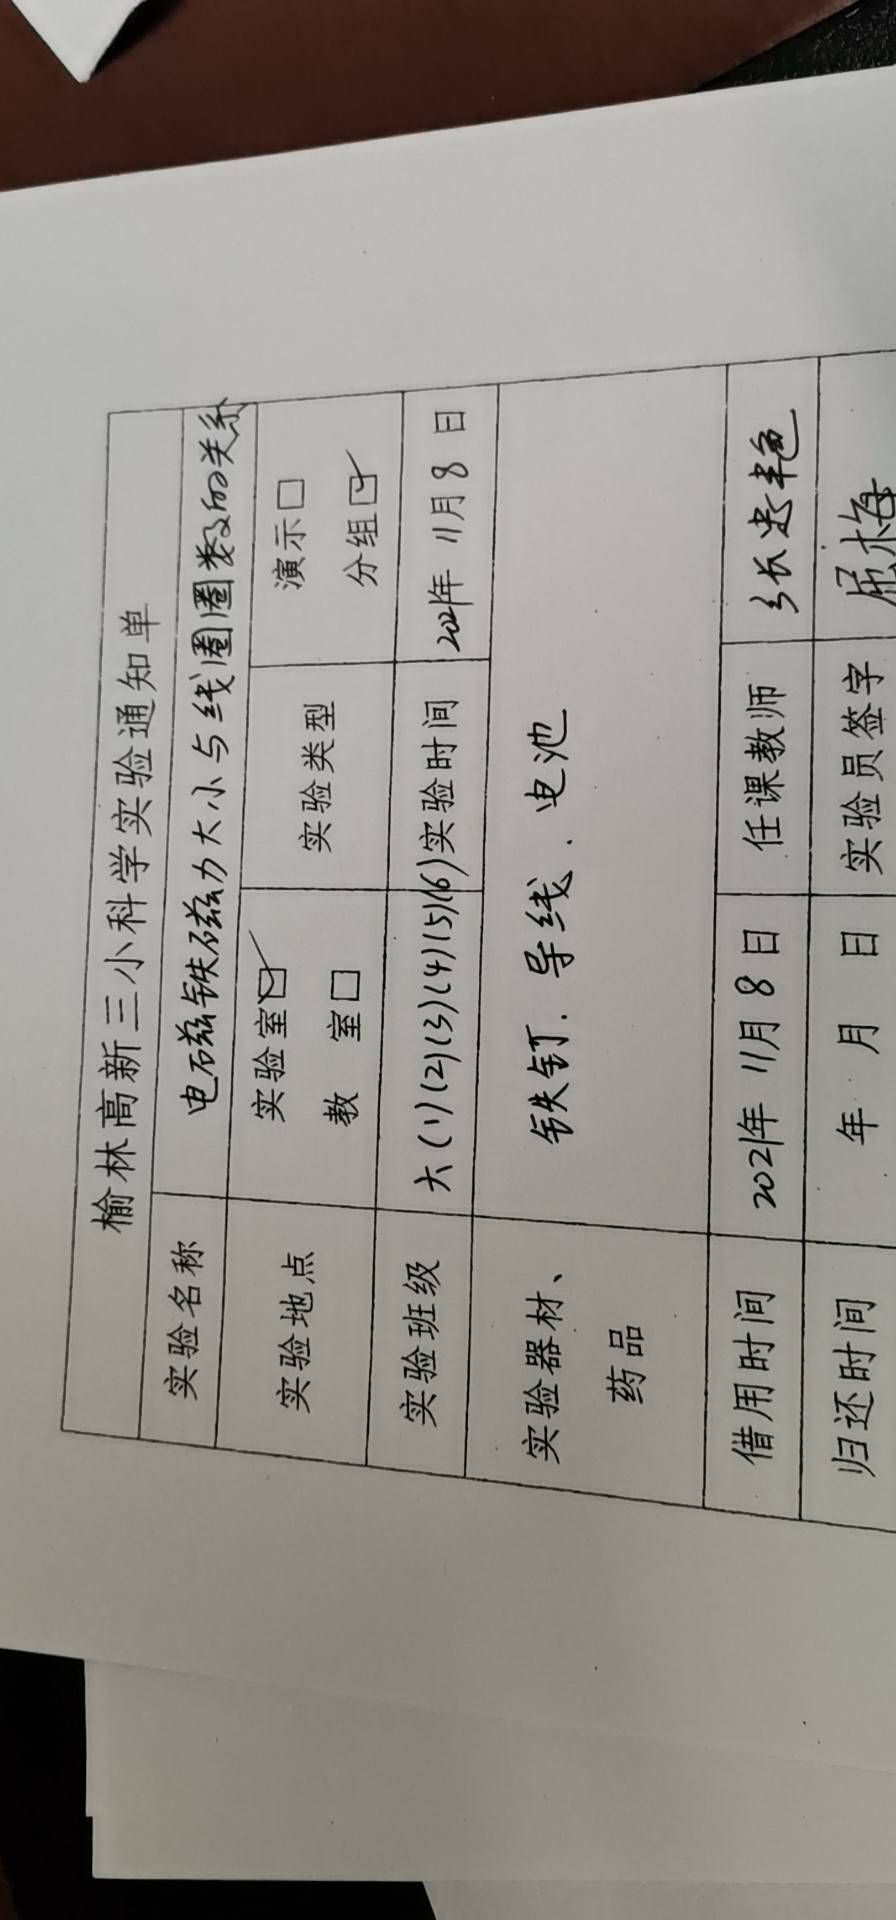 榆林高新三小科学实验通知单
实验名称 电磁铁磁力大小与线圈圈数的关系
实验地点 实验室☑ 实验类型 演示□
教 室□ 分组☑
实验班级 六(1)(2)(3)(4)(5)(6) 实验时间 2021年 11月 8 日
实验器材、
药品 铁钉、导线、电池
借用时间 2021年 11月 8 日 任课教师 张
归还时间 年 月 日 实验员签字 屈梅